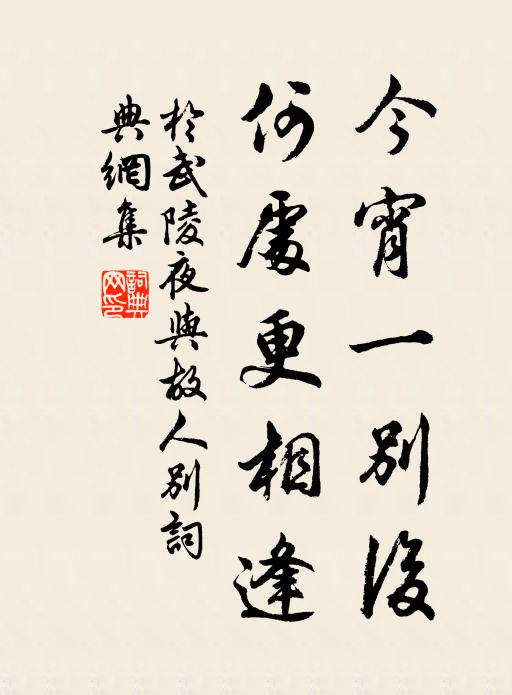 今宵一別後
何處更相逢
於武陵夜與故人別詞
典網集
詞典
网印